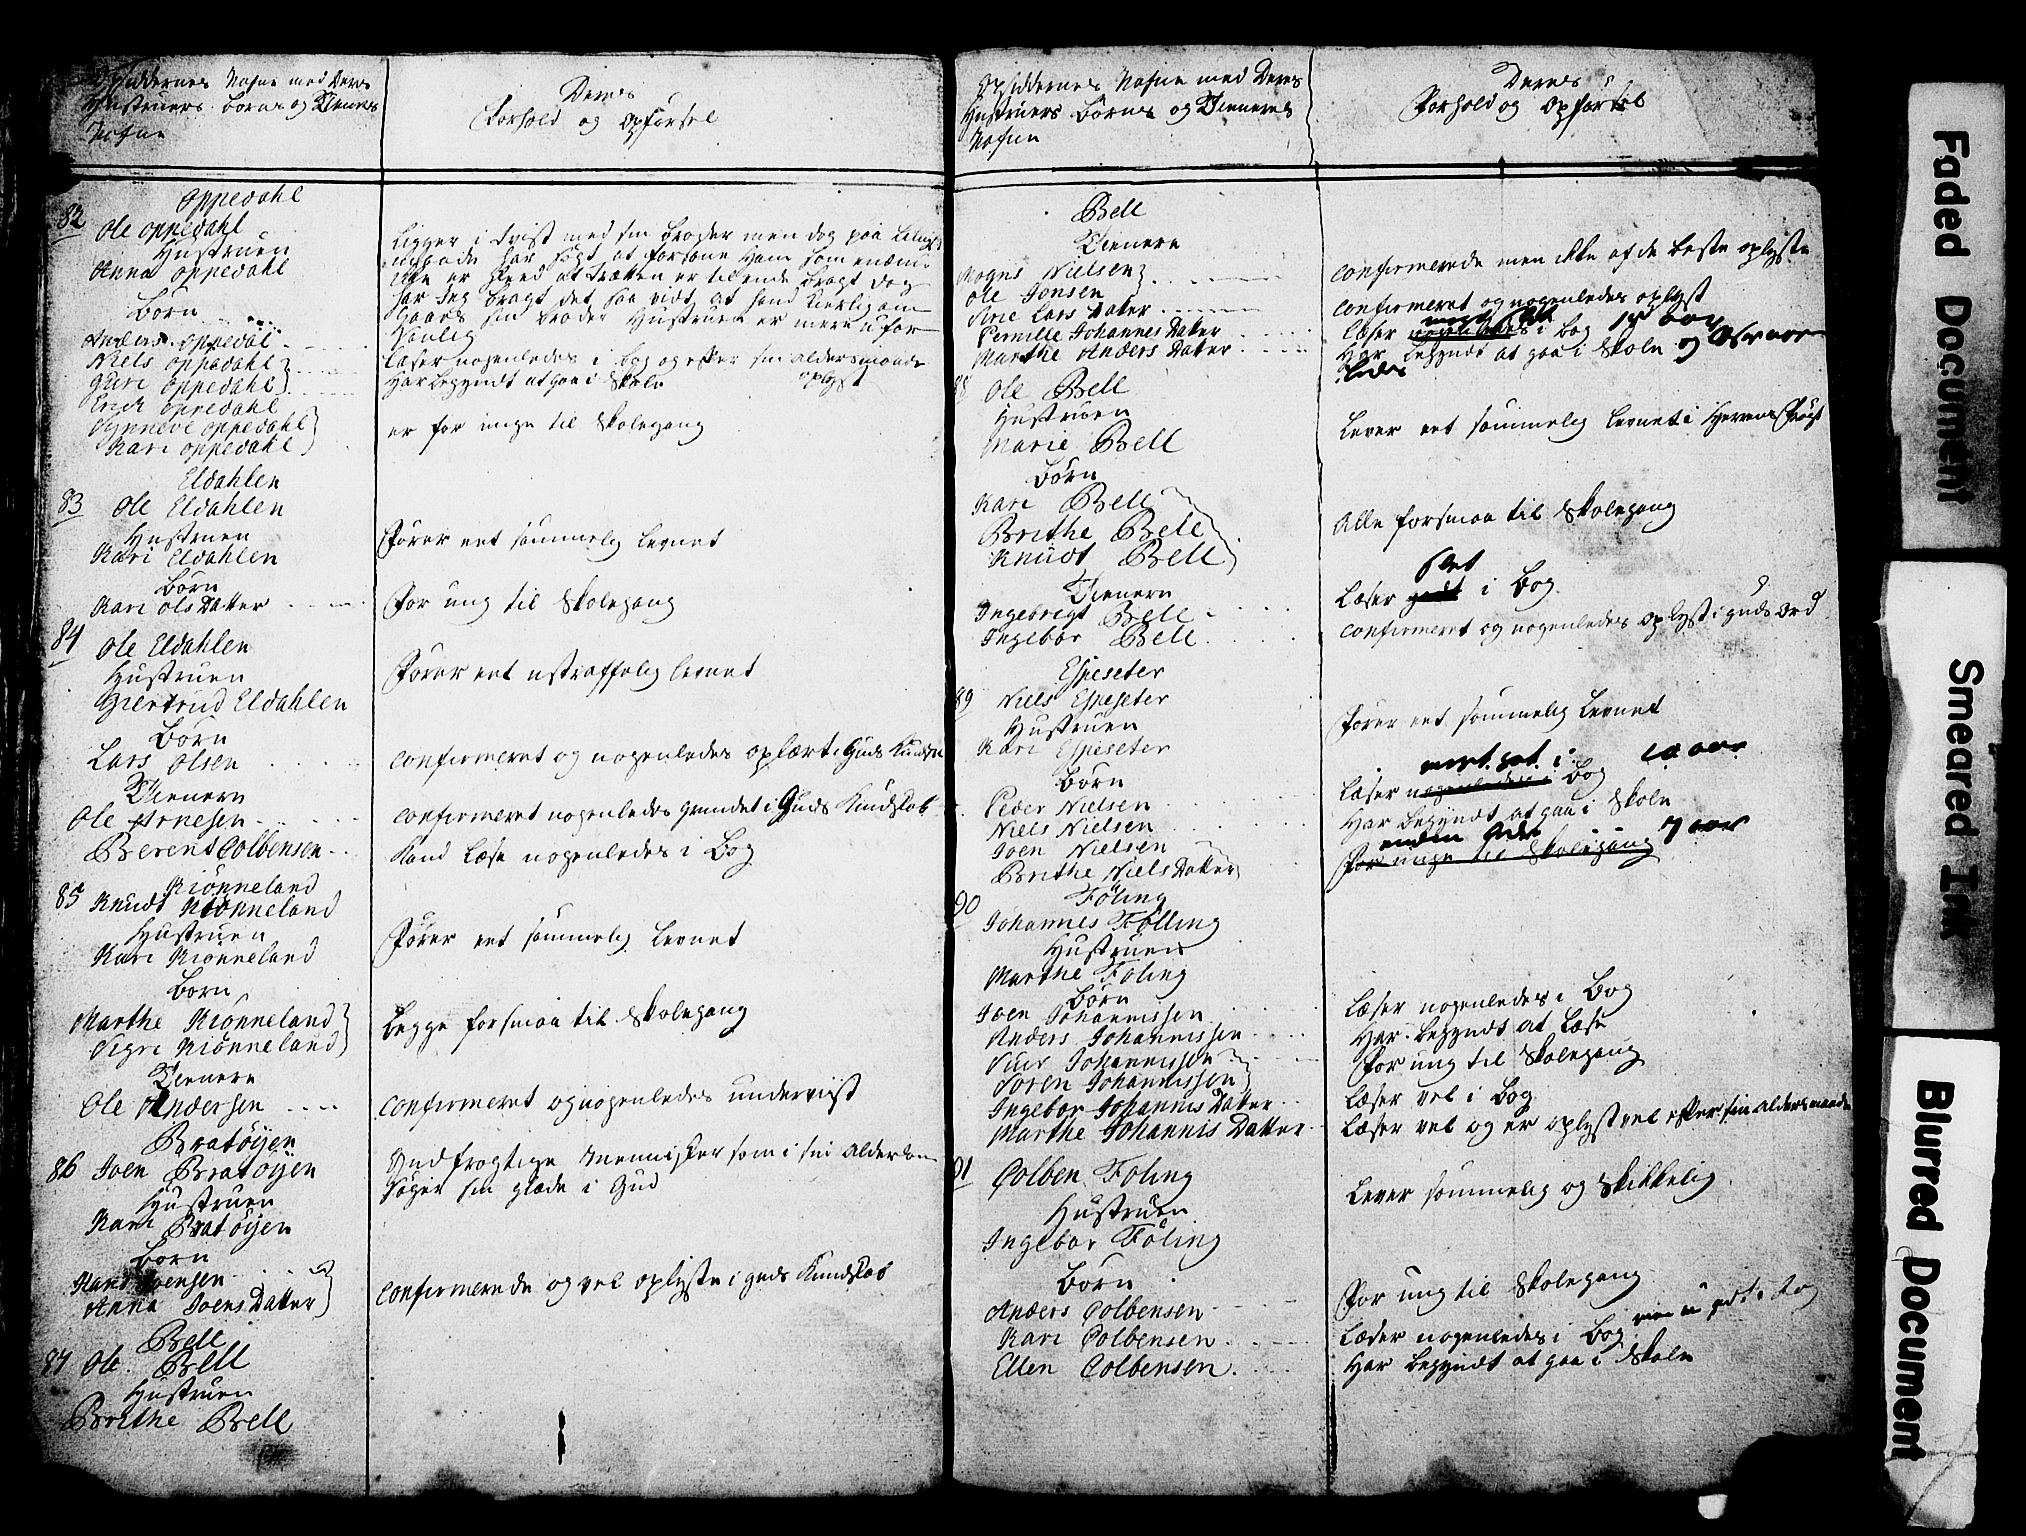 Opsiddernes Nafne med Deres
Hustruers Børns og Tieneres
Nafne
Deres
Forhold og Opførsel
Oppedahl
82
Ole Oppedahl
Hustruen
Anna Oppedahl
Børn
Anders Oppedal
Niels Oppedahl
Guri Oppedahl
Erich Oppedahl
Synneve Oppedahl
Kari Oppedahl
Ligger i tvist med sin broder men dog paa
har søgt at forsone ham som
er skeed at trætten er til ende bragt dog
har jeg bragt det saa vidt at hand kierlig om
gaaes sin broder Hustruen er mere ufor
sonlig
Læser nogenledes i bog og efter sin aldersmaade
oplyst
Har begyndt at gaae i Skole
er for unge til Skolegang
Eldahlen
83 Ole Eldahlen
Hustruen
Kari Eldahlen
Børn
Kari Ols Datter
Fører eet sømmelig levnet
For ung til Skolegang
84 Ole Eldahlen
Hustruen
Giertrud Eldahlen
Børn
Lars Olsen
Tienere
Ole Arnesen
Berent Colbensen
Fører eet ustraffelig levnet
confirmeret og nogenledes oplært i Guds Kundsk
confirmeret nogenledes grundet i Guds Kundskab
Kand læse nogenledes i Bog
Kiønneland
85 Knudt Kiønneland
Hustruen
Kari Kiønneland
Børn
Marthe Kiønneland
Sigri Kiønneland
Tienere
Ole Andersen
Fører eet sømmelig levnet
begge forsmaa til Skolegang
confirmeret og nogenledes underviist
Bratøijen
86 Joen Bratøijen
Hustruen
Kari Bratøijen
Børn
Hans Joensen
Anna Joens Datter
Gudfrogtige Mennisker som i sin Alderdom
søger sin glæde i Gud
confirmerede og vel oplyste i guds Kundskab
Bell
87 Ole Bell
Hustruen
Brithe Bell
Opsiddernes Nafne med Deres
Hustruers Børns og Tieneres
Nafne
Deres
Forhold og Opførsel
Bell
Tienere
Mogns Nielsen
Ole Jonsen
Sirie Lars Datter
Pernille Johannes Datter
Marthe Anders Datter
confirmerede men ikke af de beste oplyste
confirmeret og nogenledes oplyst
læser nogenledes i bog 14 aar
Har begyndt at gaae i Skole og
ledes
88
Ole Bell
Hustruen
Marie Bell
Børn
Kari Bell
Brithe Bell
Knudt Bell
Tienere
Ingebrigt Bell
Ingebor Bell
Lever eet sømmelig levnet i Herrens Frögt
Alle forsmaa til Skolegang
slet
Læser godt i Bog.
confirmeret og nogenledes oplyst i guds ord
Espeseter
89 Niels Espeseter
Hustruen
Kari Espeseter
Børn
Peder Nielsen
Niels Nielsen
Joen Nielsen
Brithe Niels Datter
Fører eet sømmelig levnet
10 aar
Læser nogenledes i Bog
Har begyndt at gaae i Skole
7 aar
For unge til Skolegang
Føling
90
Johannes Følling
Hustruen
Marthe Føling
Børn
Joen Johannissen
Anders Johannissen
Siur Johannissen
Søren Johannissen
Ingebor Johannis Datter
Marthe Johannis Datter
Læser nogenledes i Bog
Har begyndt at læse
For ung til Skolegang
Læser vel i Bog
Læser vel og er oplyst vel efter sin aldersmaade
91 Colben Føling
Hustruen
Ingebor Føling
Børn
Anders Colbensen
Kari Colbensen
Ellen Colbensen
Lever sømmelig og Skikkelig
For ung til Skolegang
Læser nogenledes i Bog
Har begyndt at gaae i Skole
Faded Document
Smeared Ink
Blurred Document